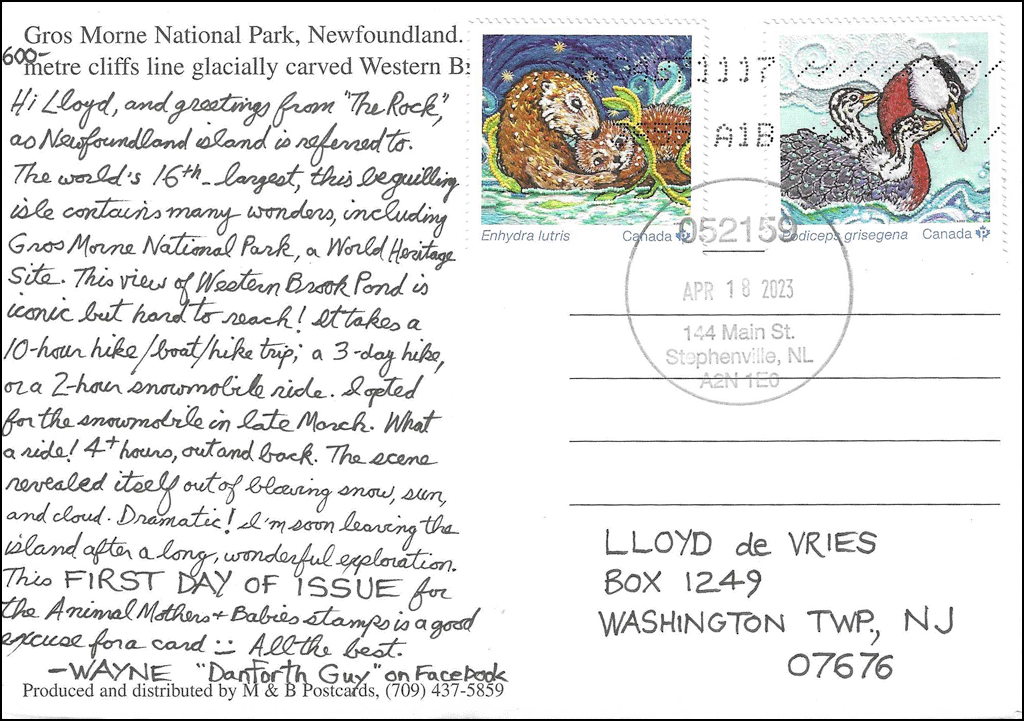 Gros Morne National Park, Newfoundland.
600-
metre cliffs line glacially carved Western B
Hi Lloyd, and greetings from "The Rock",
as Newfoundland island is referred to.
The world's 16th-largest, this beguilling
isle contains many wonders, including
Gros Morne National Park, a World Heritage
Site. This view of Western Brook Pond is
iconic but hard to reach! It takes a
10-hour hike/boat/hike trip, a 3-day hike,
or a 2-hour snowmobile ride. I opted
for the snowmobile in late March. What
a ride! 4+ hours, out and back. The scene
revealed itself out of blowing snow, sun,
and cloud. Dramatic! I'm soon leaving the
island after a long, wonderful exploration.
This FIRST DAY OF ISSUE for
the Animal Mothers + Babies stamps is a good
excuse for a card :-) All the best.
-WAYNE "Danforth Guy" on Facebook
Produced and distributed by M & B Postcards, (709) 437-5859
Enhydra lutris Canada P
Podiceps grisegena Canada P
1117
A1B
052159
APR 18 2023
144 Main St.
Stephenville, NL
A2N 1E0
LLOYD de VRIES
BOX 1249
WASHINGTON TWP., NJ
07676